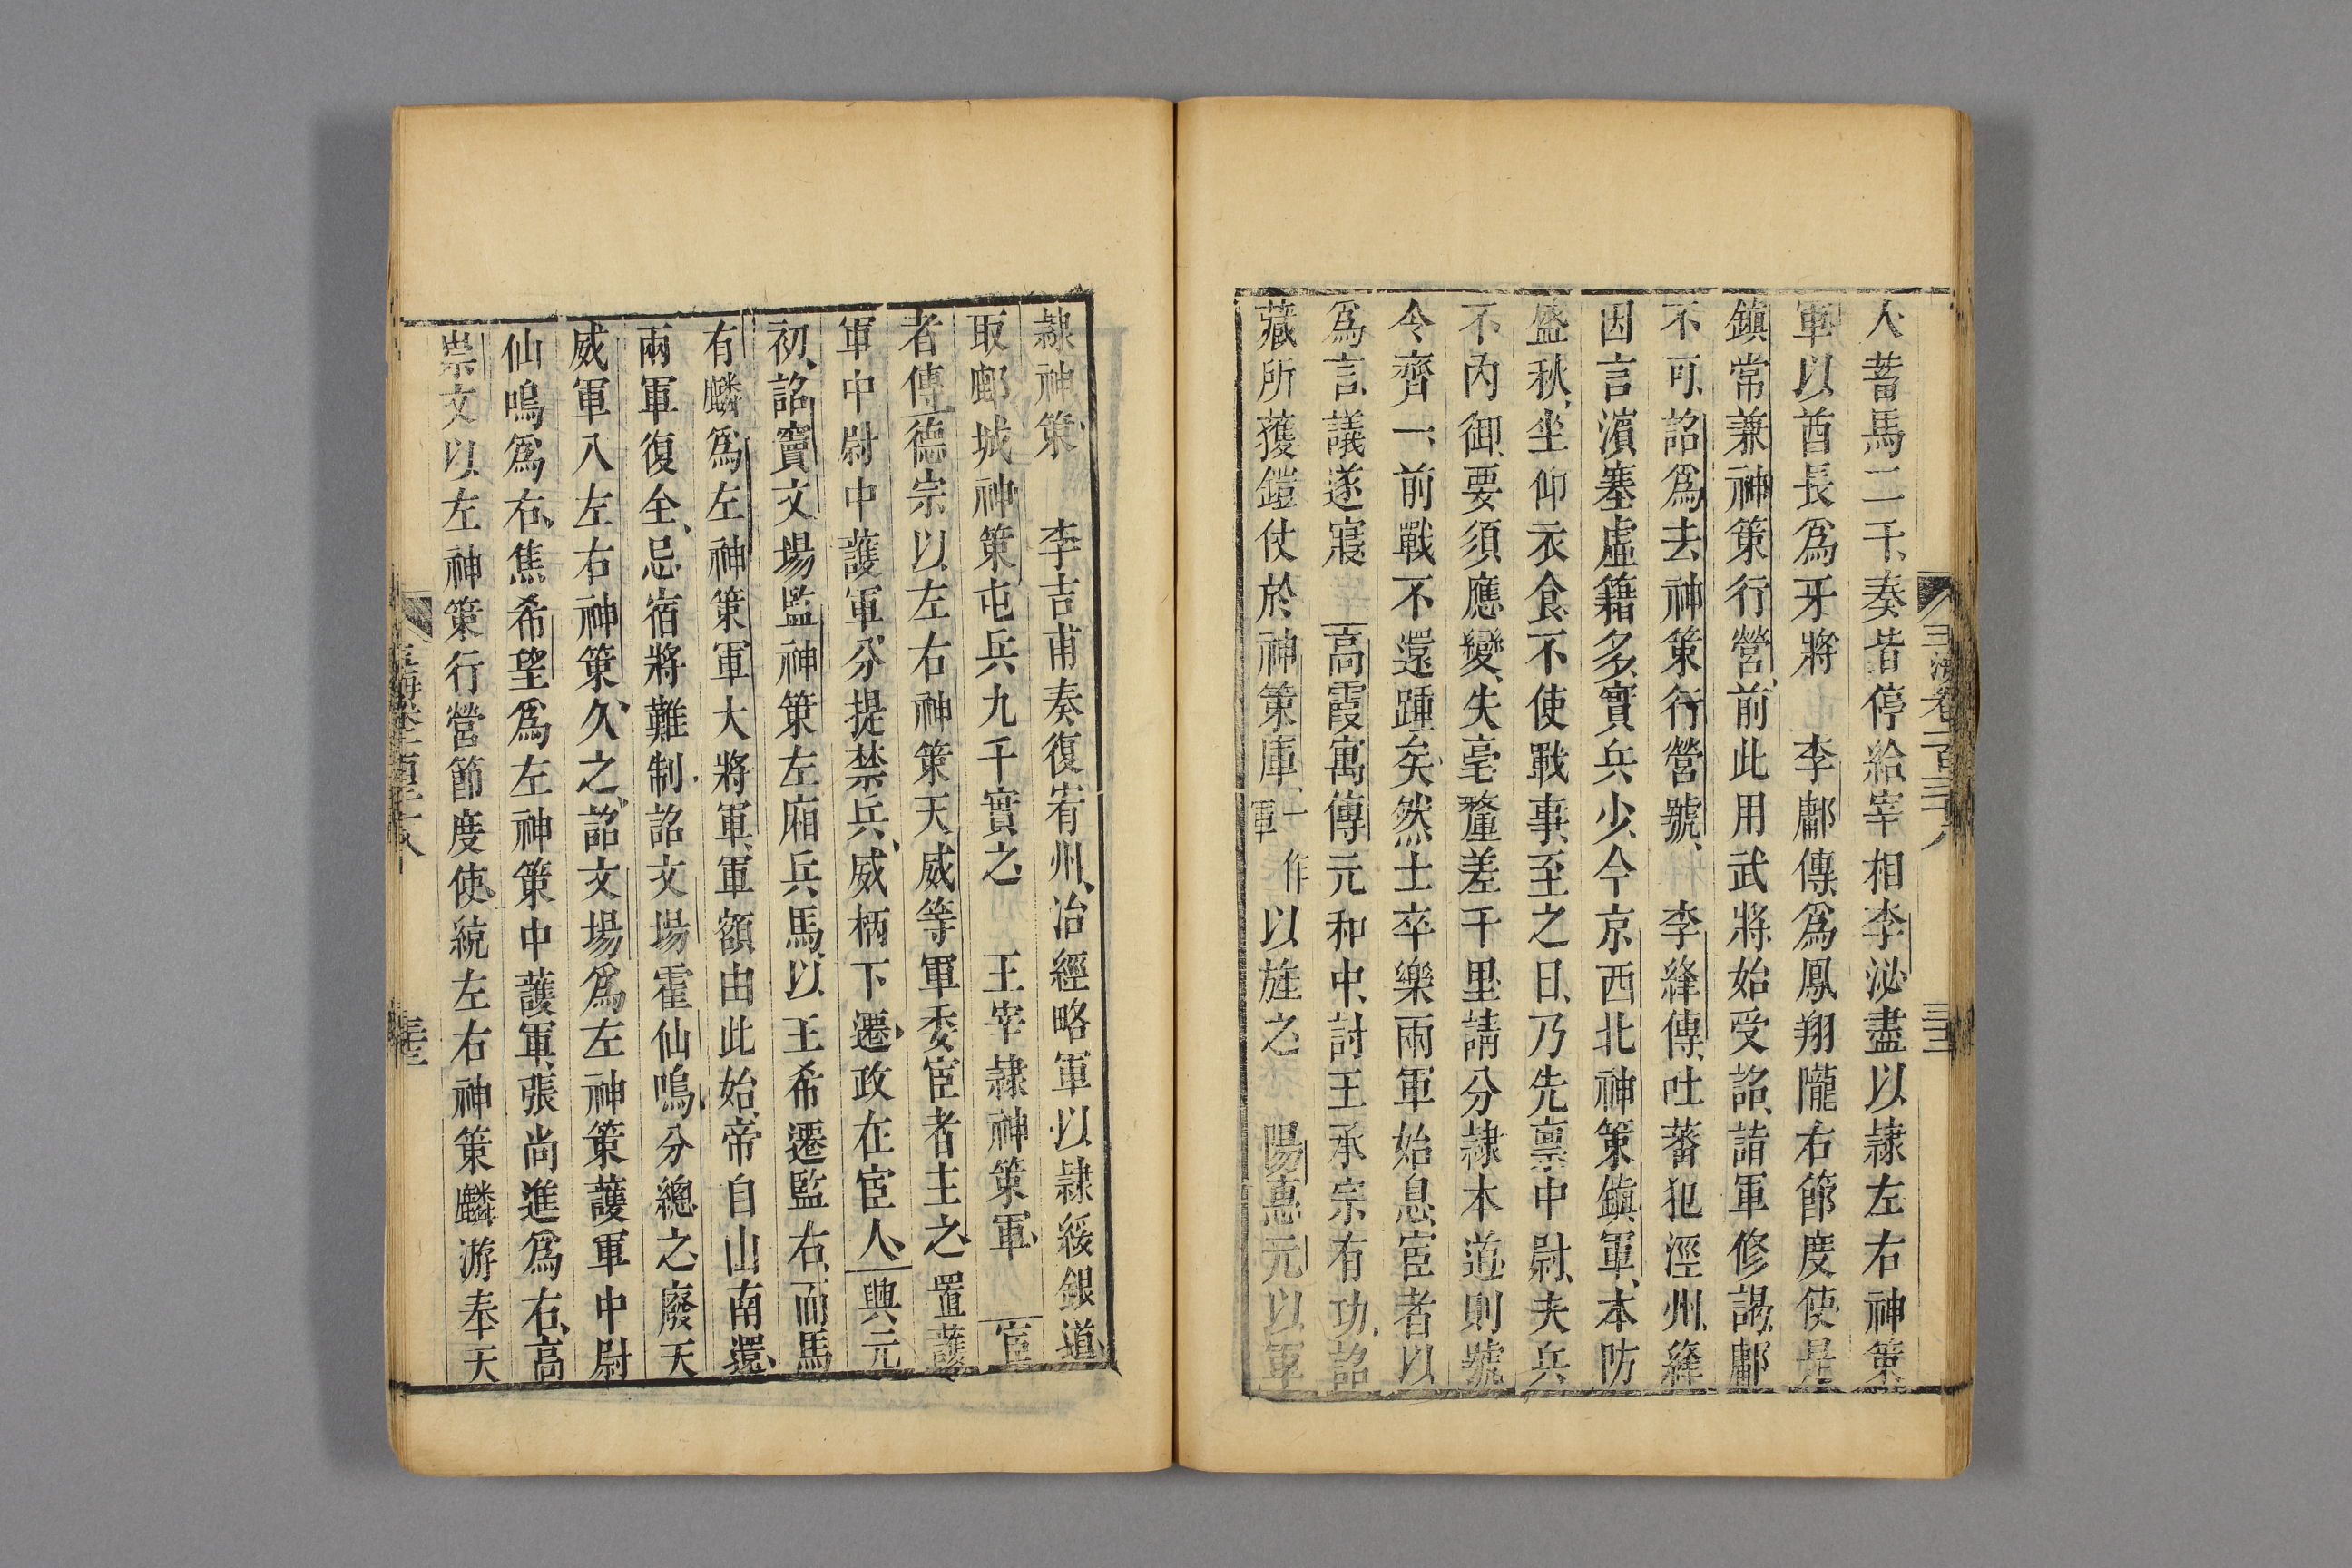 人蓄馬二千奏皆停給宰相李泌盡以隷左右神策
軍以酋長爲牙將 李鄘傳爲鳳翔隴右節度使是
鎮常兼神策行營前此用武將始受詔詣軍修謁鄘
不可詔爲去神策行營號 李絳傳吐蕃犯涇州絳
因言濵塞虛籍多實兵少今京西北神策鎮軍本防
盛秋坐仰衣食不使戰事至之日乃先禀中尉夫兵
不內御要須應變失毫釐差千里請分隷本道則號
令齊一前戰不還踵矣然士卒樂兩軍始息宦者以
爲言議遂寢 高霞寓傳元和中討王承宗有功詔
藏所獲鎧仗於神策庫一作軍以旌之 陽惠元以軍
隷神策 李吉甫奏復宥州治經略軍以隷綏銀道
取鄜城神策屯兵九千實之 王宰隷神策軍 宦
者傳德宗以左右神策天威等軍委宦者主之置護
軍中尉中護軍分提禁兵威柄下遷政在宦人興元
初詔竇文場監神策左廂兵馬以王希遷監右而馬
有麟爲左神策軍大將軍軍額由此始帝自山南還
兩軍復全忌宿將難制詔文場霍仙鳴分總之廢天
威軍入左右神策久之詔文場爲左神策護軍中尉
仙鳴爲右焦希望爲左神策中護軍張尚進爲右高
崇文以左神策行營節度使統左右神策麟游奉天
玉海卷一百三十八